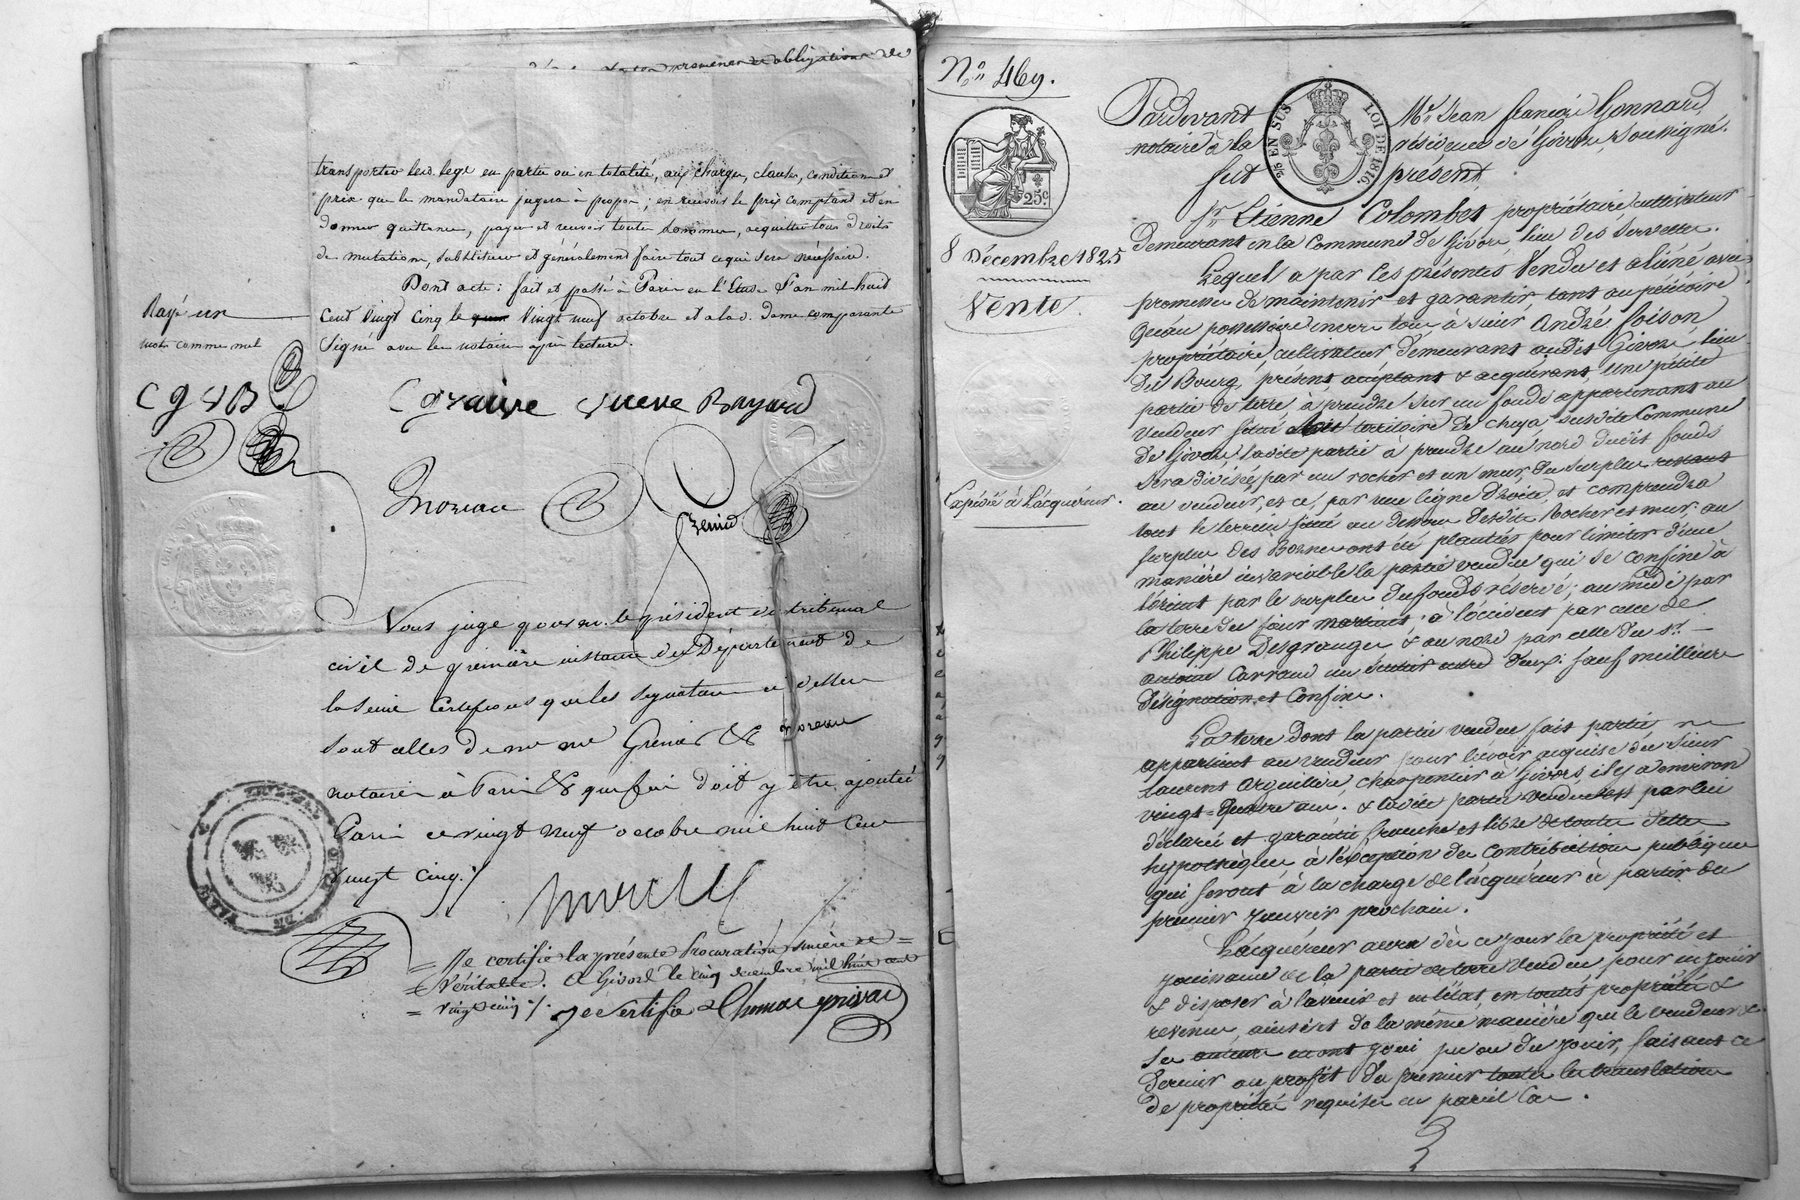 transporter led. legs en partie ou en totalité, aux charges, clauses, conditions et
prix que le mandataire jugera à propos; en recevoir le prix comptant et en
donner quittance, payer et recevoir toute somme, acquitter tous droits
de mutation, substituer et généralement faire tout ce qui sera nécessaire.
Dont acte: fait et passé à Paris en l'Etude l'an mil huit
cent vingt cinq le vingt neuf octobre et a lad. dame comparante
signé avec les notaires après lecture.
Rayé un
mot comme nul
C g V B
veuve Bayard
Moreau
Vous juge pour m. le président du tribunal
civil de première instance du Département de
la Seine Certifions que les signatures ci dessus
sont celles de me me Grenier & Moreau
notaires à Paris & que foi doit y être ajoutée
Paris ce vingt neuf octobre mil huit cent
vingt cinq ./.
= Je certifie la présente Procuration sincère &
= Véritable. à Givors le cinq décembre mil huit cent
= vingt cinq ./. je certifie
No. 469.
25c
8 Décembre 1825
Vente.
Expédié à l'acquéreur.
EN SUS
LOI DE 1816.
Pardevant Me. Jean françois Gonnard,
notaire à la résidence de Givors soussigné.
fut présent
Sr. Etienne Colombet propriétaire cultivateur
demeurant en la Commune de Givors, lieu des Servettes.
Lequel a par les présentes Vendu et aliéné avec
promesse de maintenir et garantir tant au pétitoire
qu'au possessoire envers tous à sieur André foison
propriétaire cultivateur demeurant audit Givors lieu
du Bourg, présent acceptant & acquérant, Une petite
partie de terre, à prendre sur un fonds appartenant au
Vendeur situé territoire de Cheza susdite Commune
de Givors, ladite partie à prendre au nord dudit fonds
sera divisée par un rocher et un mur, du surplus restant
au vendeur, et ce, par une ligne droite, et comprendra
tout le terrein situé au dessous desdits Rocher et mur au
surplus des Bornes ont été plantées pour limiter d'une
manière invariable la partie vendue qui se confine à
l'orient par le surplus du fonds réservé; au midi par
la terre du sieur martinet; à l'occident par celle de
Philippe Desgranges & au nord par celle du sr.
antoine Carraud un sentier entre deux; sauf meilleure
désignation et Confins.
La terre dont la partie vendue fait partie
appartient au vendeur pour l'avoir acquise du sieur
Laurent Arquillière, charpentier à Givors, il y a environ
vingt-quatre ans. & ladite partie vendue est par lui
déclarée et garantie franche et libre de toutes dettes
hypothèques à l'exception des contributions publiques
qui seront à la charge de l'acquéreur à partir du
premier janvier prochain.
L'acquéreur aura dès ce jour la propriété et
jouissance de la partie de terre vendue pour en jouir
& disposer à l'avenir et en l'état, en toute propriété &
revenu, ainsi et de la même manière que le vendeur &
ses auteurs en ont joui, pu ou du jouir, faisant ce
dernier au profit du premier toute la translation
de propriété requise en pareil cas.